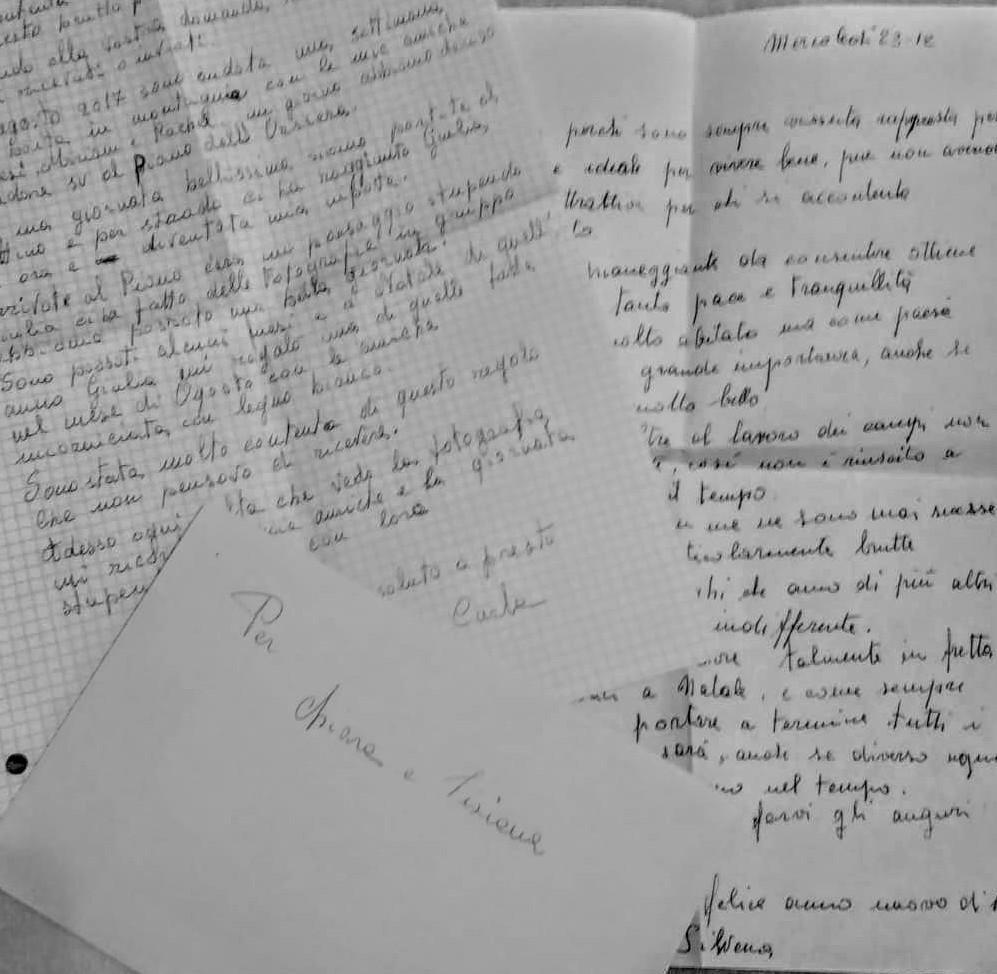 esto brutto p
ndo alla vostra domanda,
ricevuti o inviati.
agosto 2017 sono andata una settimana
in montagna con le mie amiche
Miriam e Rachel un giorno abbiamo deciso
andare su al Piano dell'
una giornata bellissima, siamo partite al
ttino e per strada ci ha raggiunto Giulia,
ora è diventata mia nipote.
arrivate al Piano era un paesaggio stupendo
Giulia ci ha fatto delle fotografie in gruppo
abbiamo passato una bella giornata.
Sono passati alcuni mesi e a Natale di quell'
anno Giulia mi regalò una di quelle fatte
nel mese di Agosto con la
incorniciata con legno bianco
Sono stata molto contenta di questo regalo
che non pensavo di ricevere.
Adesso ogni lta che vedo la fotografia
mi ricor amiche e la giornata
stupen con loro
saluto a presto
Carla
Per
Chiara e Tiziana
Mercoledì 23-12
perché sono sempre vissuta
e ideale per vivere bene, pur non avendo
per chi si accontenta
to
maneggiante da consentire
tanta pace e tranquillità
olto abitato ma come paese
grande importanza, anche se
molto bello
tre al lavoro dei campi non
così non è riuscito a
il tempo
me ne sono mai successe
ticolarmente brutte
chi che anno di più altri
indifferente.
talmente in fretta
a Natale, e come sempre
portare a termine tutti i
sarà, anche se diverso ogni
no nel tempo.
farvi gli auguri
felice anno nuovo di
Silvana